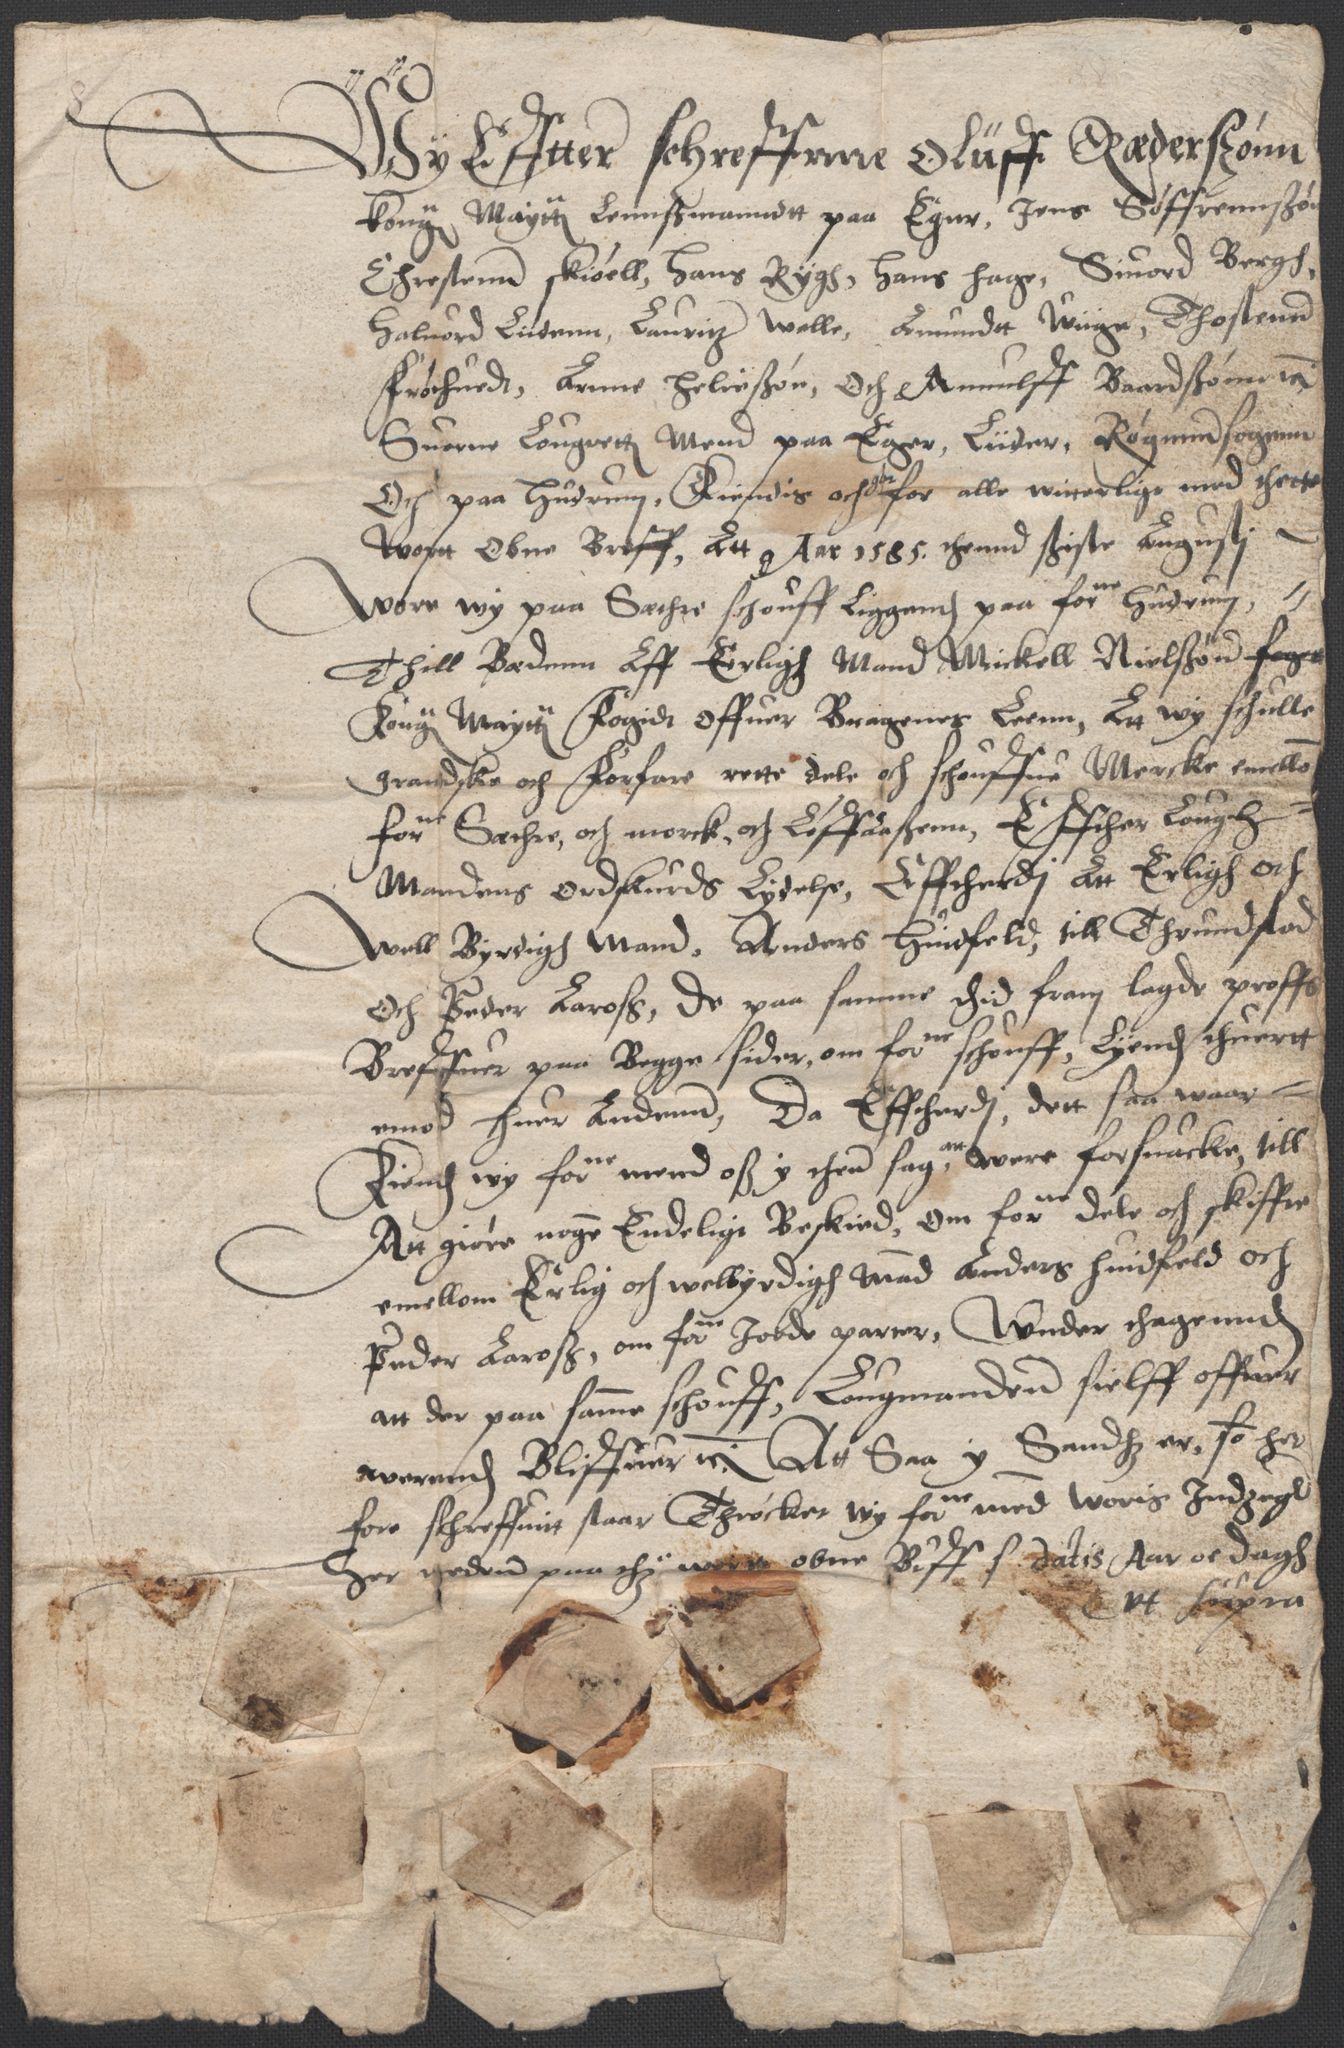 Wÿ Effter schreffne Oluff Pæderszønn
Konng Maytt Lennsszmanndt paa Eger, Jens Søffrennszøn
Chrestenn skiøell, Hans Rÿgh, Hans Hage, Siuord Bergh,
Haluord Liidenn, Lauritz Welle, Amundtt Wiige, Thostenn
Frøchuedt, Arnne Helieszøn, Och Anunlff Baardszønn
Suorne Lougrett Mend paa Eger, Liider, Røgennsogenn
Och paa Hudrum, Kiendis och giør for alle witterlige med thette
wortt Obne Breff, Att Aar 1585. thennd siste Augustj
wore wy paa Sæthre schouff Liggend paa forne Hudrum,
Thill Bedenn Aff Erligh Mand Mickell Nielszøn foget
Kong Maytt Fogidt offuer Bragenes Leenn, Att wy schulle
grandske och Forfare rette dele och schouffue Mercke emellom
forne Sæthre, och morck, och Løffaaszenn, Effther Lough
Mandens Ordskurds Lydelse, Effttherdj Att Erligh och
well Byrdigh Mand, Anders Huidfeld, till Thrundstad
Och Peder Laross, de paa samme thid fram lagde proffs
Breffuer paa Begge sider, om forne schouff, Lyend thuertt
emod huer Andenn, Da Effttherdj, dett saa waar
Kiend wy forne mend oss y then sag, att were forsuacke, till
Att giøre noge Endeligt Beskied, Om forne dele och skiffte
emellom Erlig och welbyrdigh mand Anders Huidfeld och
Peder Laross, om forne Jorde parter, Wnder thagennd
att der paa samme schouff, Lougmandenn sielff offuer
werend Bliffuer Att Saa y Sandhz er, so her
fore schreffuit staar Thrøcker wy forne mend woris Indzegl
her nedenn paa thz wortt obne Breff datis Aar oc dagh
vt supra